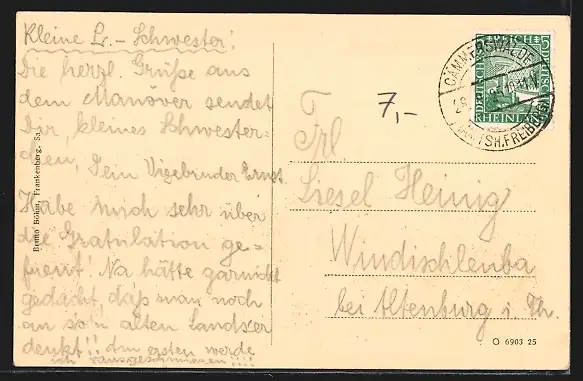 Kleine Lr.-Schwester!
Die herzl. Grüße aus
dem Manöver sendet
Dir, kleines Schwester-
chen, Dein Vizebruder Ernst.
Habe mich sehr über
die Gratulation ge=
freut! Na hätte garnicht
gedacht, daß man noch
an so'n alten Landser
denkt!! Am ersten werde
ich rausgeschmissen!!!!
Bruno Böhm, Frankenberg, Sa.
7,-
DEUTSCHES REICH
5
RHEINLAND
CÄMMERSWALDE
28
(AMTSH. FREIBERG)
Frl.
Liesel Heinig
Windischleuba
bei Altenburg i. Th.
O 6903 25